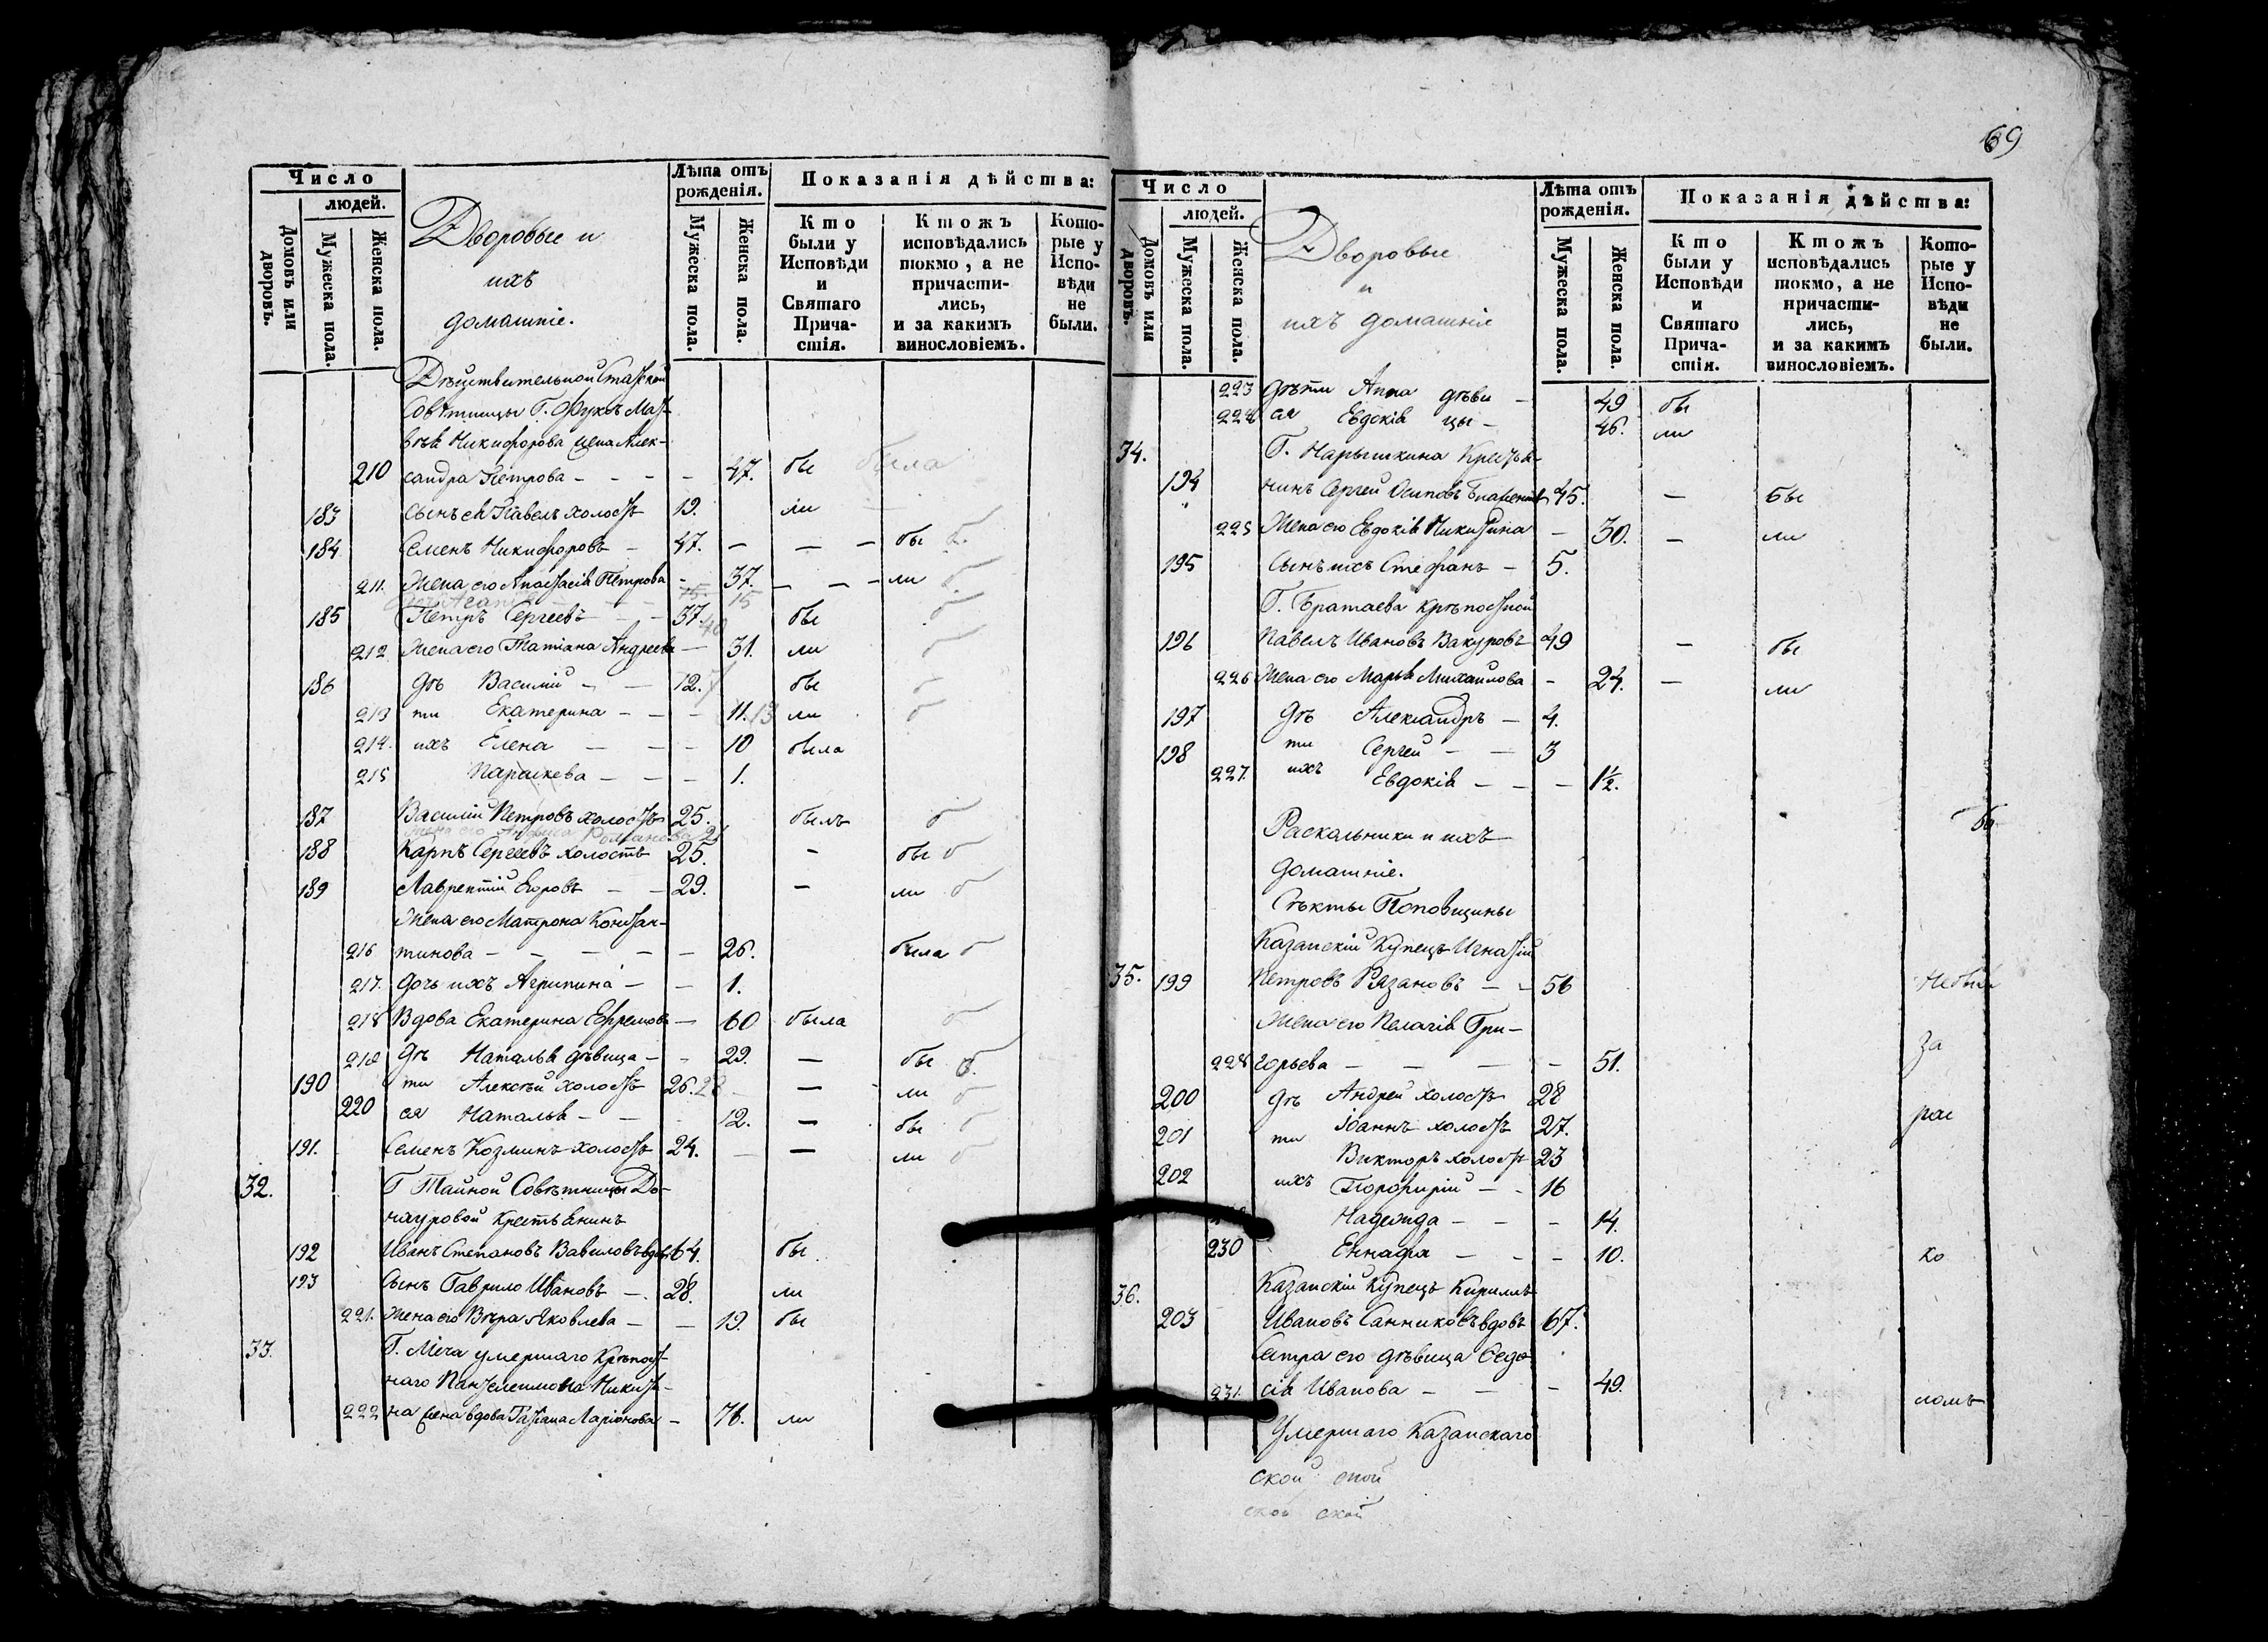 69
Число
людей.
Домовъ или дворовъ.
Мужеска пола.
Женска пола.
Дворовые и
ихъ
домашніе.
Лѣта отъ рожденія.
Мужеска пола.
Женска пола.
Показанія дѣйства:
Кто были у Исповѣди и Святаго Прича-стія.
Ктожъ исповѣдались токмо, а не причасти-лись, и за какимъ винословіемъ.
Кото-рые у Испо-вѣди не были.
Дѣйствительной Статской
Совѣтницы Г. Фуксъ Мат-
вѣя Никифорова жена Алек-
210 сандра Петрова - - - - 47. бы была
183 Сынъ ея Павелъ холостъ 19. ли
184 Семенъ Никифоровъ - 47. - - - бы б.
211. Жена его Анастасія Петрова - 37. - - - ли б
15. 15
185 Петръ Сергеевъ - - 37. 40 бы б
212 Жена его Татіана Андреева - 31. ли б
186 дѣ Василій - - 12. бы б
213 ти Екатерина - - - 11. 13 ли б
214. ихъ Елена - - - 10 была
215 Параскева - - - 1.
187 Василій Петровъ холостъ 25. былъ б
жена его Романова 21
188 Карпъ Сергеевъ холостъ 25. - бы б
189 Лаврентій Егоровъ - - 29. - ли б
Жена его Матрона Констан-
216 тинова - - - - - 26. была б
217. дочь ихъ Агрипина - - - 1.
218 Вдова Екатерина Ефремова - 60 была б
219 дѣ Наталья дѣвица - - 29. - бы б.
190 ти Алексѣй холостъ 26. 28 - ли б
220 ея Наталья - - - 12. - бы б
191. Семенъ Козминъ холостъ 24. - - ли б
32. Г Тайной Совѣтницы До-
науровой Крестьянинъ
192 Иванъ Степановъ Вавиловъ вдовъ 64. бы
193 Сынъ Гаврило Ивановъ - 28. ли
221. Жена его Вѣра Яковлева - - 19. бы
33. Г. Меча умершаго Крѣпост-
наго Пантелеимона Никити-
222 на жена вдова Татіана Ларіонова - 76. ли
Число
людей.
Домовъ или дворовъ.
Мужеска пола.
Женска пола.
Дворовые
и
ихъ домашніе
Лѣта отъ рожденія.
Мужеска пола.
Женска пола.
Показанія дѣйства:
Кто были у Исповѣди и Святаго Прича-стія.
Ктожъ исповѣдались токмо, а не причасти-лись, и за какимъ винословіемъ.
Кото-рые у Испо-вѣди не были.
223 дѣти Анна дѣви - 49 бы
224 ея Евдокія цы - 46. ли
34. Г. Нарышкина Крестья-
194 нинъ Сергей Осиповъ 45. - бы
225 Жена его Евдокія Никитина - 30. - ли
195 Сынъ ихъ Стефанъ - 5.
Г. Братаева крѣпостной
196 Павелъ Ивановъ Вакуровъ 49 - бы
226 Жена его Марья Михаилова - 24. - ли
197 дѣ Александръ - 4.
198 ти Сергей - - 3
227. ихъ Евдокія - - - 1½.
Раскольники и ихъ
домашніе.
Сѣкты Поповщины
Казанскій Купецъ Игнатій
35. 199 Петровъ Рязановъ - - 56 Небыли
Жена его Пелагія Гри-
228 горьева - - - - 51. за
200 дѣ Андрей холостъ 28
рас
201 ти Іоаннъ холостъ 27.
Викторъ холостъ 23
202 ихъ Порфирій - - 16
Надежда - - - 14.
230 Еннафа - - - 10. ко
36. Казанскій Купецъ Кирилъ
203 Ивановъ Санниковъ вдовъ 67.
Сестра его дѣвица Ѳедо-
231. сія Иванова - - - 49.
ломъ
Умершаго Казанскаго
ской
ской ской